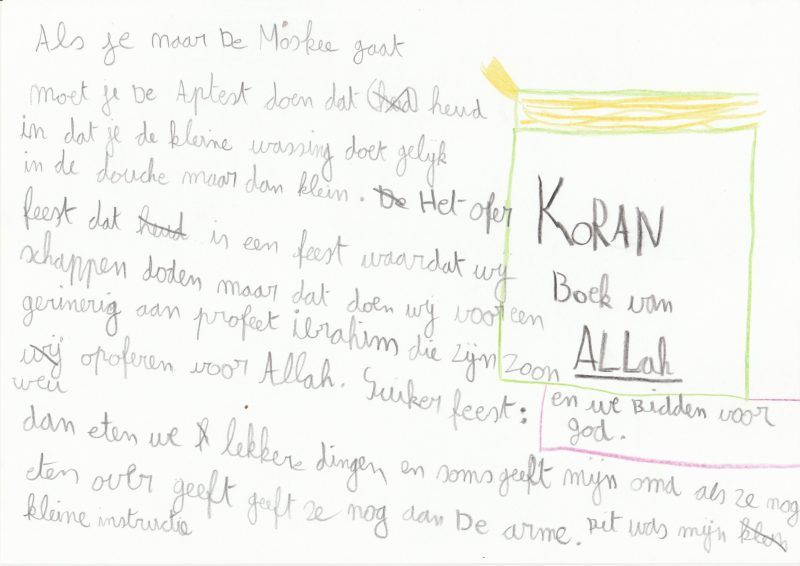 Als je naar De Moskee gaat
moet je De Aptest doen dat (heud) heud
in dat je de kleine wassing doet gelijk
in de douche maar dan klein. De Het ofer
feest dat heud is een feest waardat wij
schappen doden maar dat doen wij voor een
gerinerig aan profeet ibrahim die zijn zoon
wij opoferen voor Allah. Suiker feest:
weu
dan eten we lekkere dingen en soms geeft mijn omd als ze nog
eten over geeft geeft ze nog aan De arme. Dit was mijn klein
kleine instructie
KORAN
Boek van
ALLah
en we Bidden voor
god.